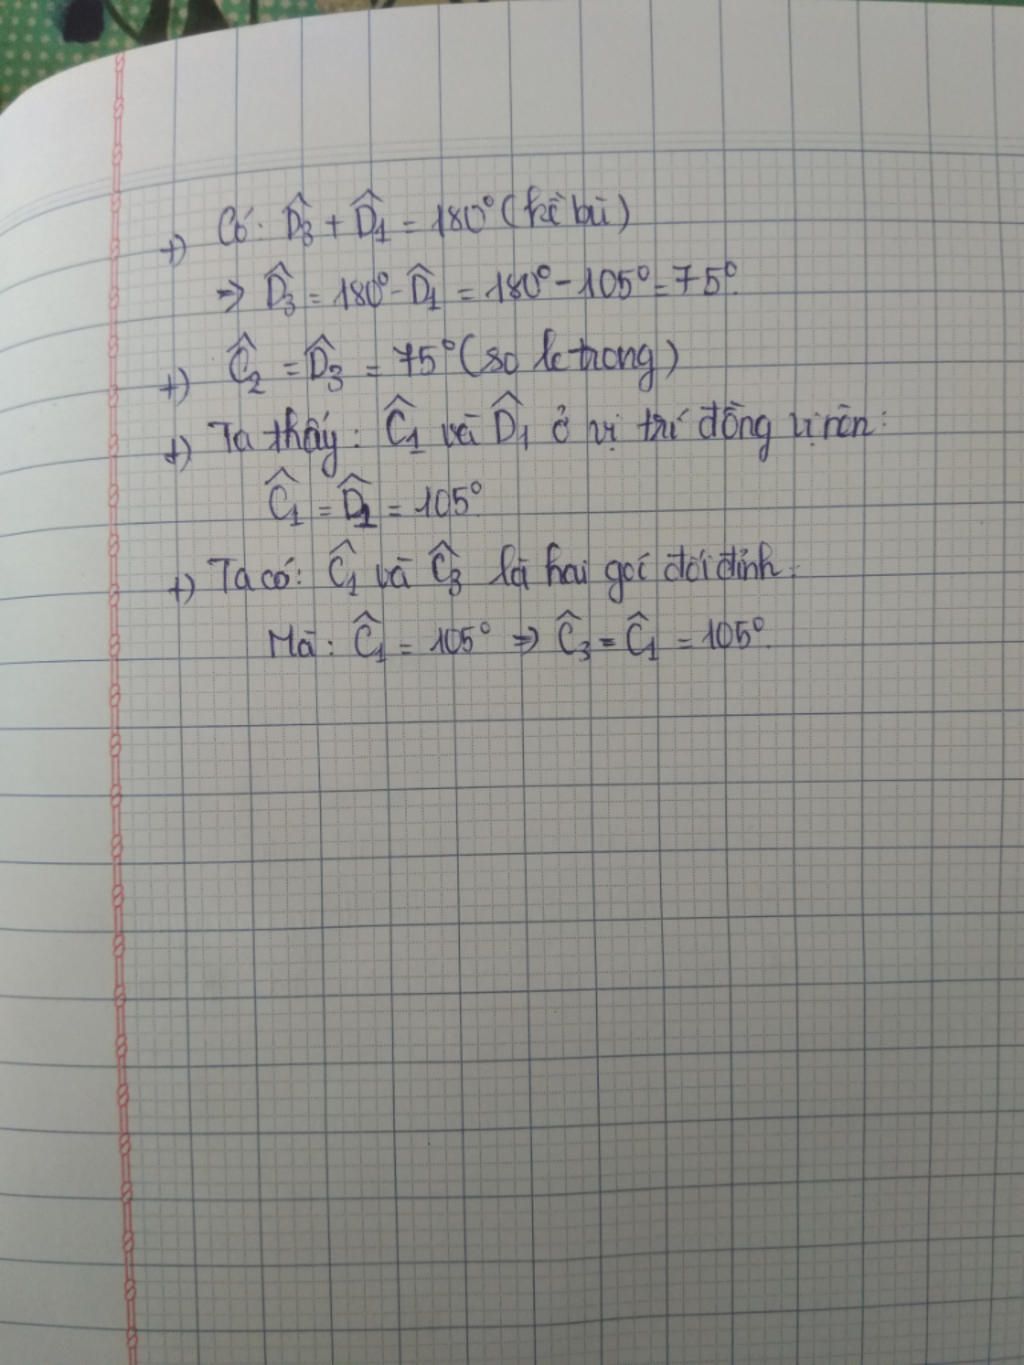 +) Có: D̂₃ + D̂₁ = 180° (kề bù)
=> D̂₃ = 180° - D̂₁ = 180° - 105° = 75°.
+) Ĉ₂ = D̂₃ = 75° (so le trong)
+) Ta thấy: Ĉ₁ và D̂₁ ở vị trí đồng vị nên:
Ĉ₁ = D̂₁ = 105°.
+) Ta có: Ĉ₁ và Ĉ₃ là hai goí đối đỉnh.
Mà: Ĉ₁ = 105° => Ĉ₃ = Ĉ₁ = 105°.